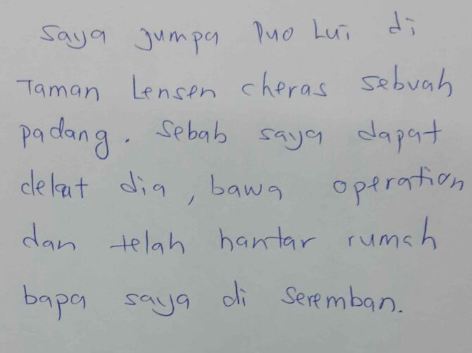 Saya jumpa Duo Lui di
Taman Lensen cheras sebuah
padang. Sebab saya dapat
dekat dia, bawa operation
dan telah hantar rumah
bapa saya di Seremban.